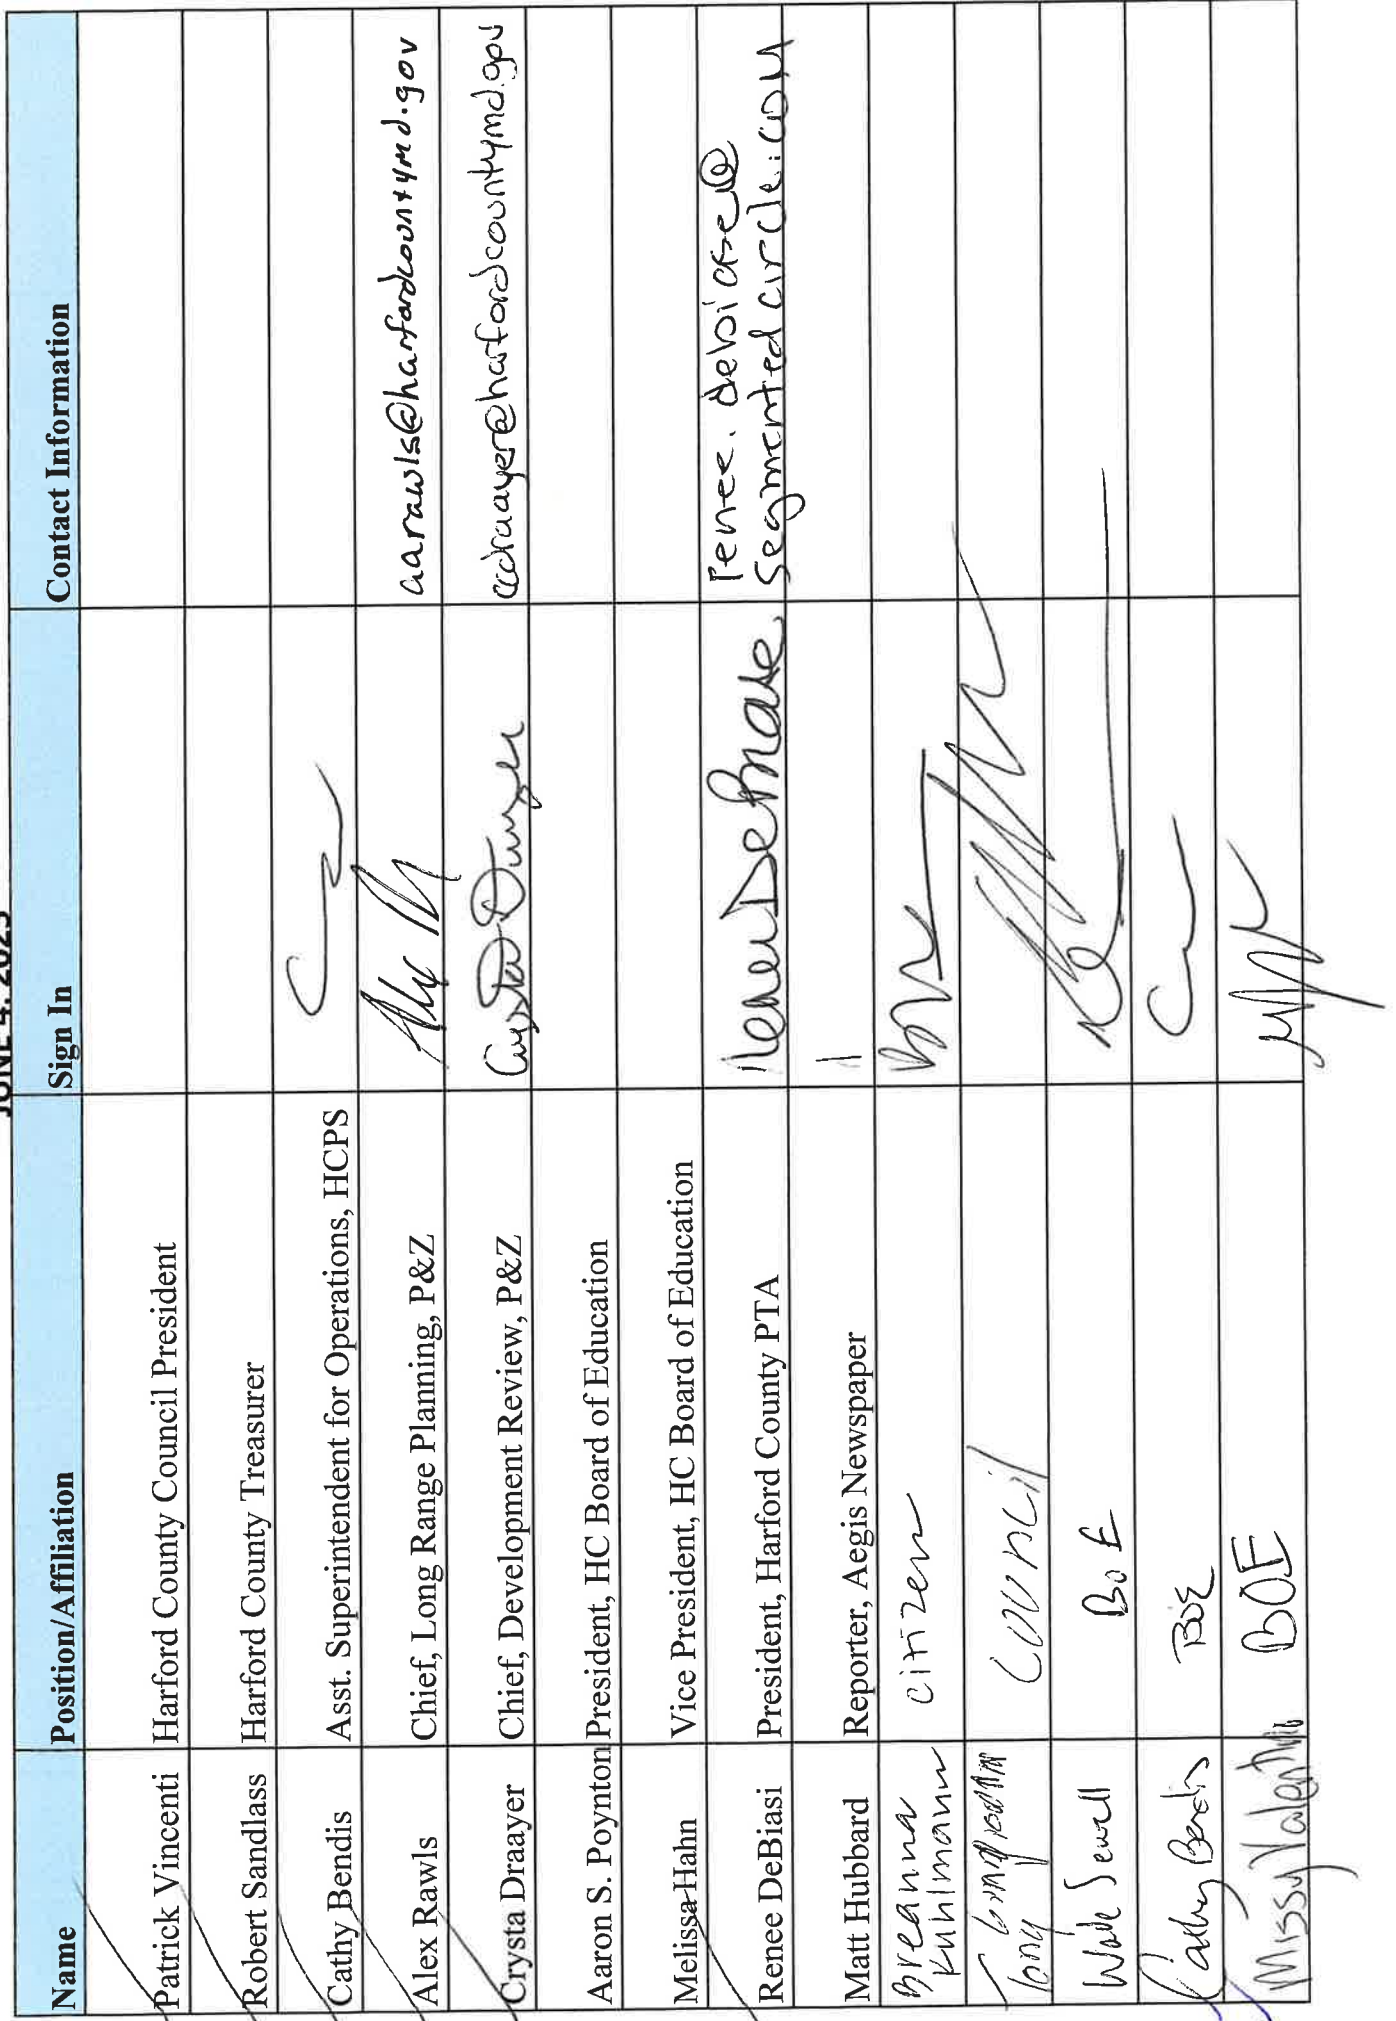 JUNE 4, 2025
Name Position/Affiliation Sign In Contact Information
Patrick Vincenti Harford County Council President
Robert Sandlass Harford County Treasurer
Cathy Bendis Asst. Superintendent for Operations, HCPS
Alex Rawls Chief, Long Range Planning, P&Z aarawls@harfordcountymd.gov
Crysta Draayer Chief, Development Review, P&Z ccdraayer@harfordcountymd.gov
Aaron S. Poynton President, HC Board of Education
Melissa Hahn Vice President, HC Board of Education
Renee DeBiasi President, Harford County PTA renee.debiase@
segmentedcircle.com
Matt Hubbard Reporter, Aegis Newspaper
Breanna citizen
Kuhlmann
Tony Council
Wade Sewell BoE
Cathy Bendis BOE
Missy Valentino BOE